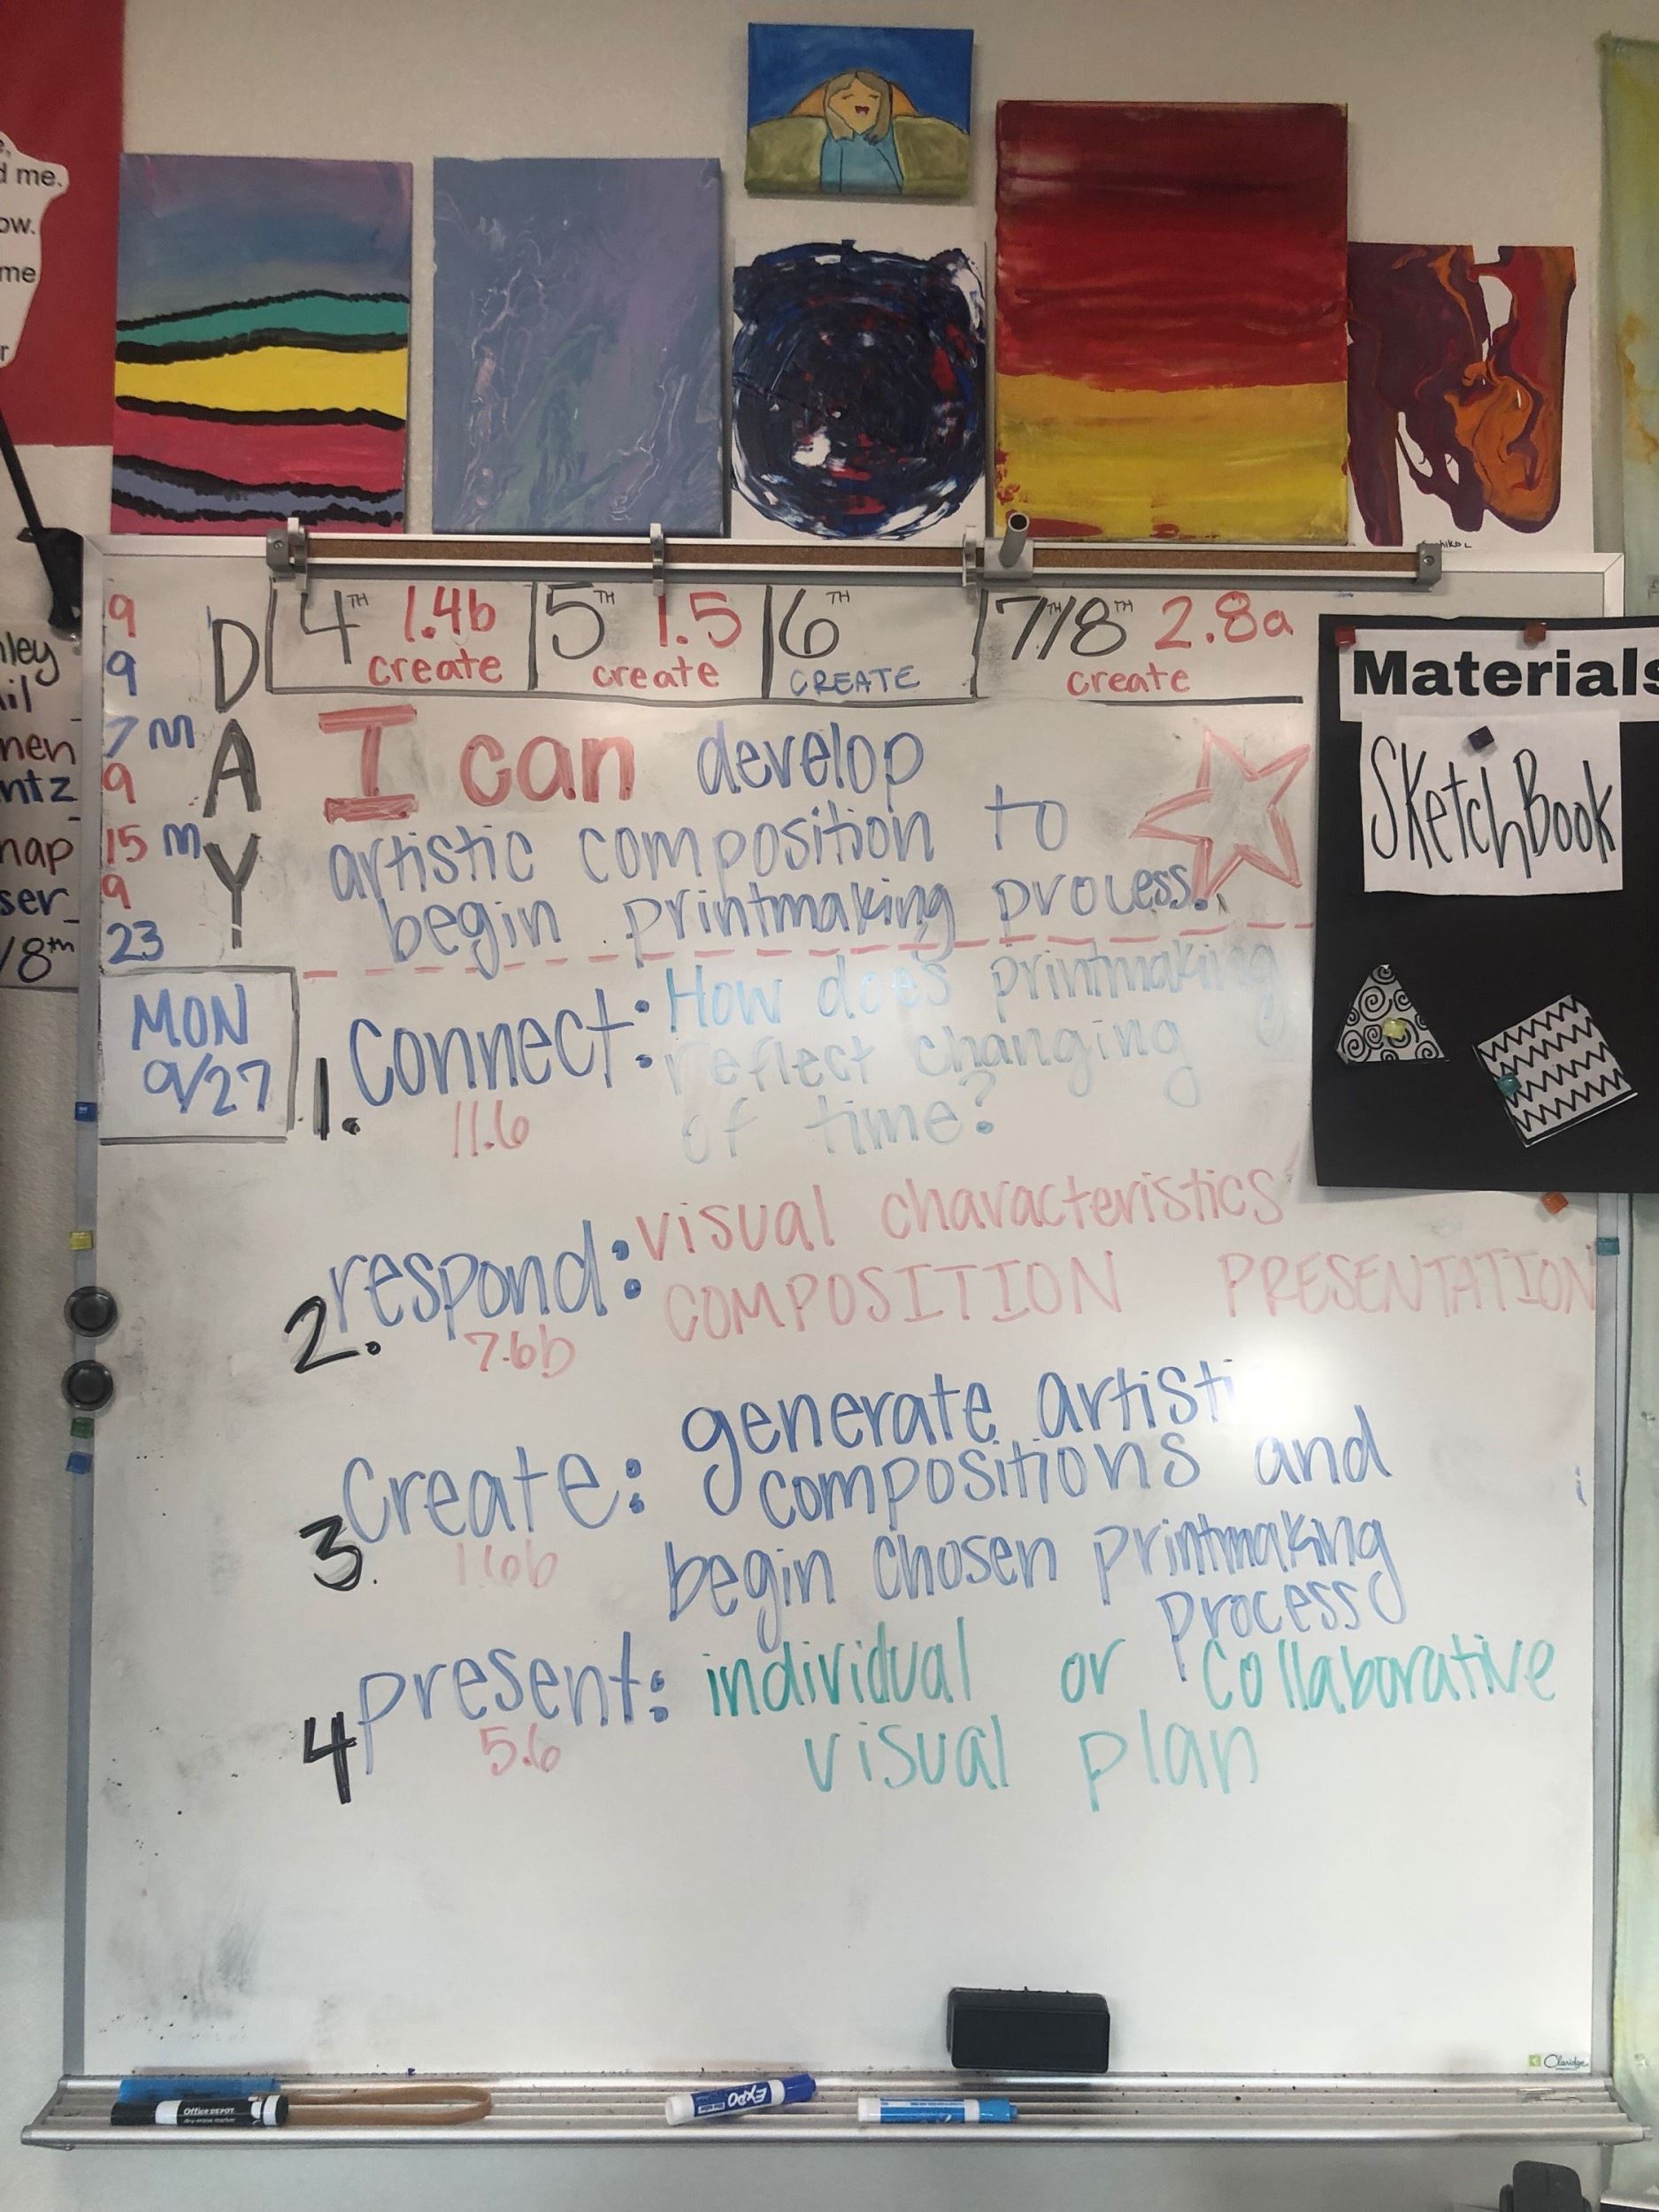 d me.
ow.
me
4TH 1.4b
create
5TH 1.5
create
6TH
CREATE
7TH/8TH 2.8a
create
9
9
7 m
9
15 m
9
23
nley
il
nen
ntz
nap
ser
/8th
DAY
MON
9/27
I can develop
artistic composition to
begin printmaking process.
1. Connect: How does printmaking
reflect changing
of time?
11.6
2. respond: visual characteristics
COMPOSITION PRESENTATION
7.6b
3. Create: generate artisti
compositions and
begin chosen printmaking
process
1.6b
4 present: individual or collaborative
visual plan
5.6
Materials
SketchBook
Claridge
Office DEPOT
dry-erase marker
EXPO